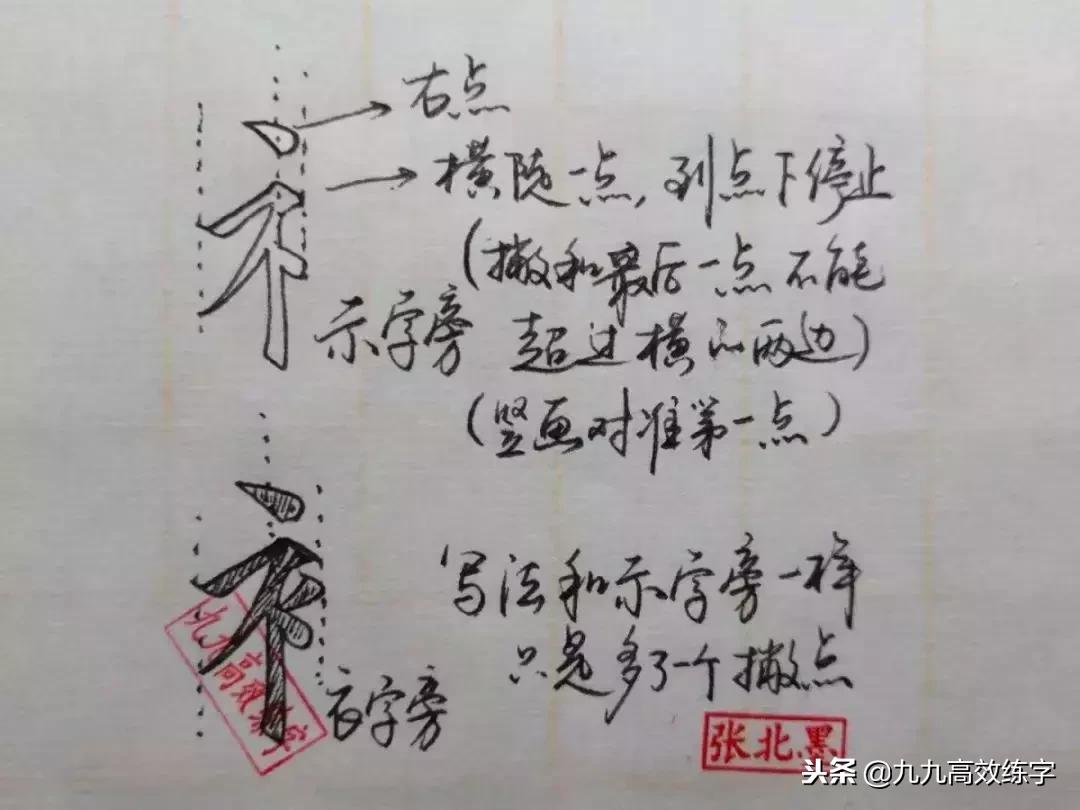 右点
横陡一点，到点下停止
(撇和最后一点不能
示字旁 超过横的两边)
(竖画对准第一点)
写法和示字旁一样
只是多了一个撇点
衣字旁
九九高效练字
张北.黑
头条 @九九高效练字